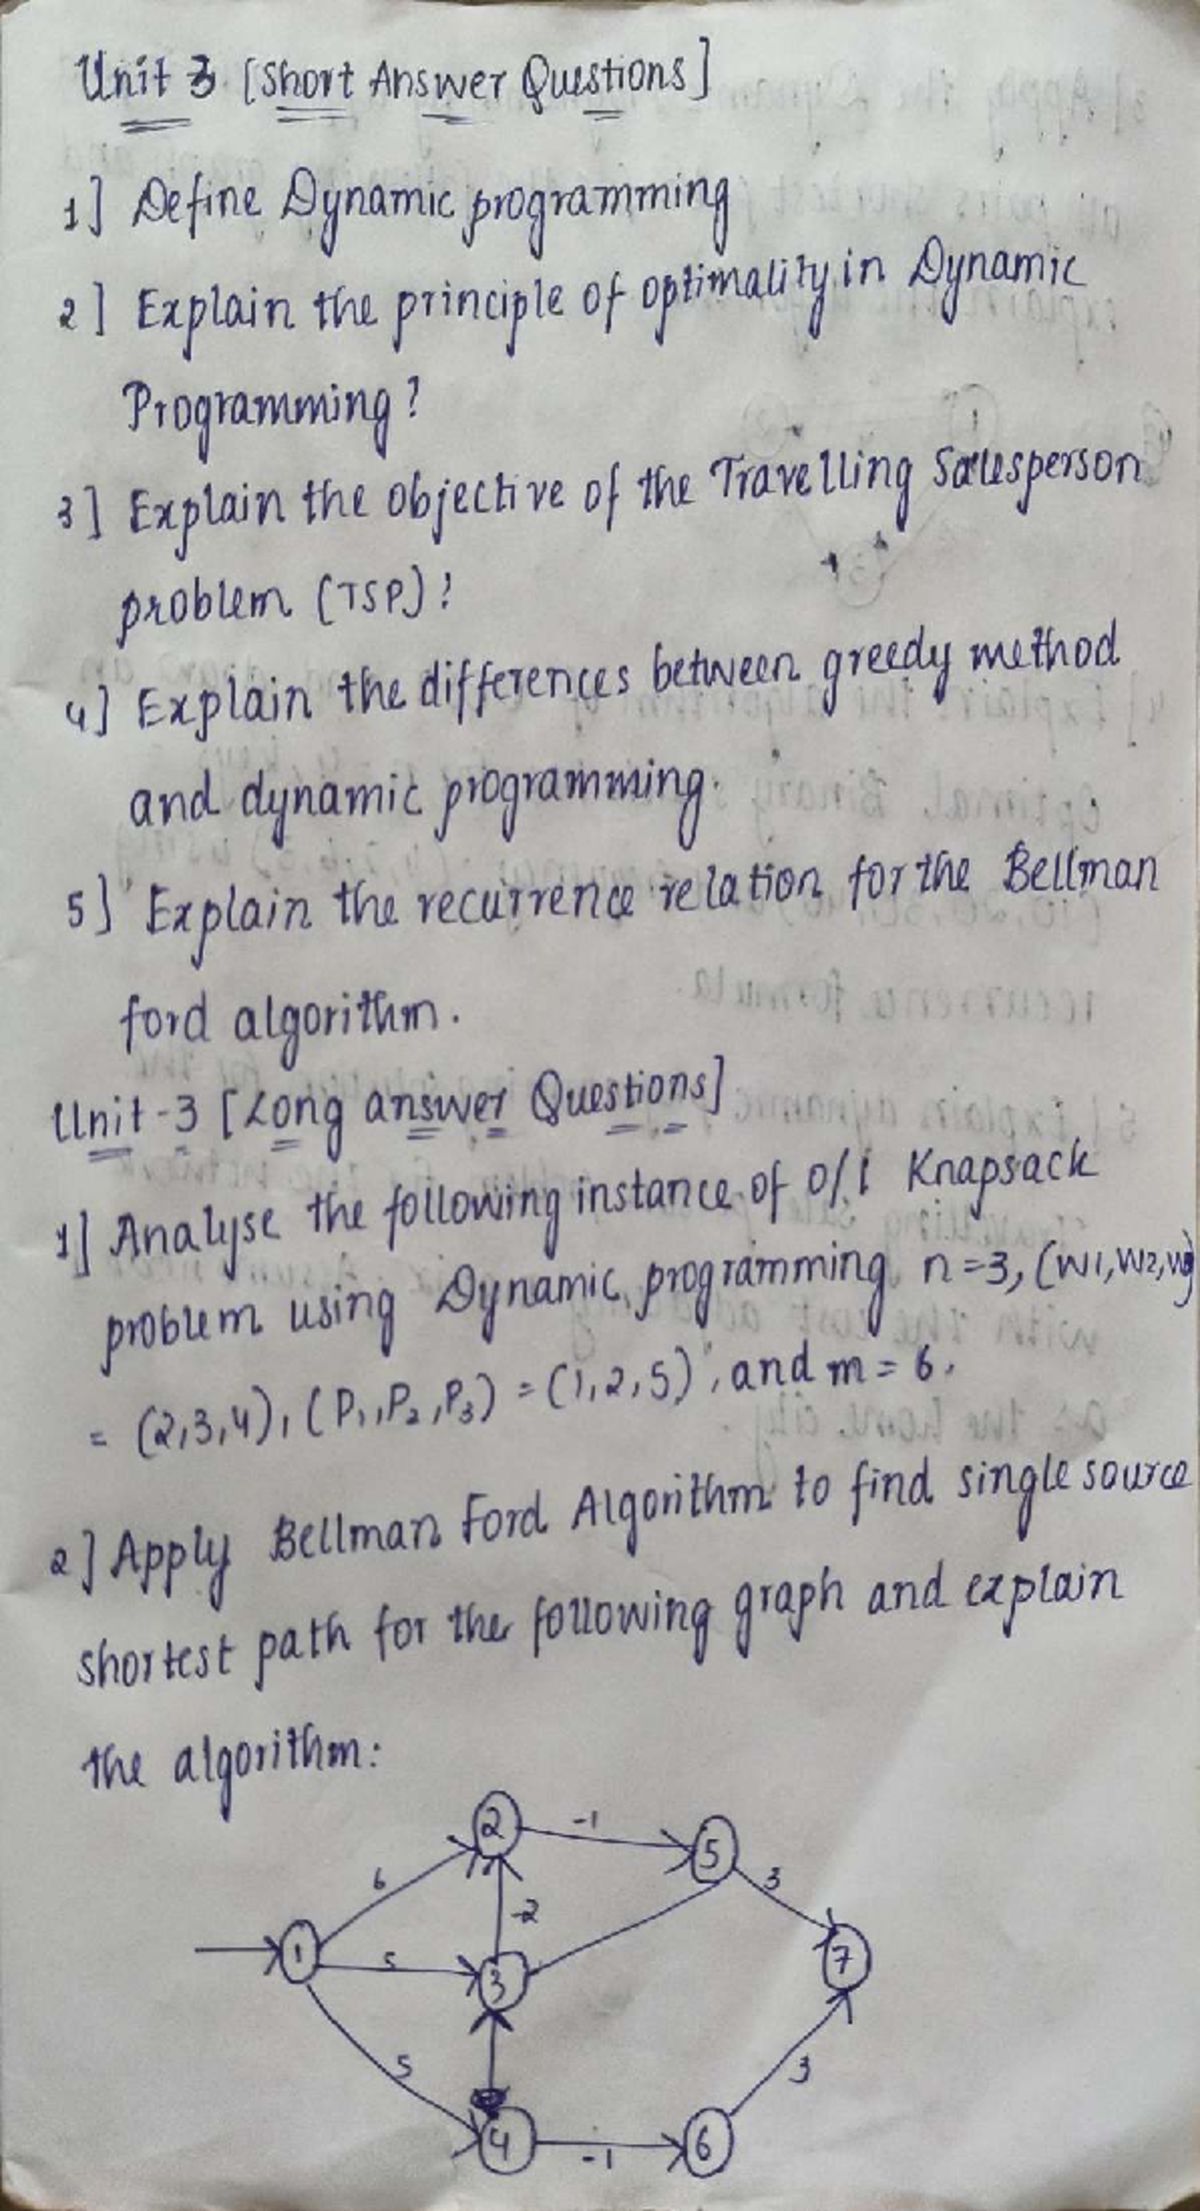 Unit 3 [Short Answer Questions]
1] Define Dynamic programming
2] Explain the principle of optimality in Dynamic
Programming?
3] Explain the objective of the Travelling Salesperson
problem (TSP)?
4] Explain the differences between greedy method
and dynamic programming.
5] Explain the recurrence relation for the Bellman
ford algorithm.
Unit-3 [Long answer Questions]
1] Analyse the following instance of 0/1 Knapsack
problem using Dynamic programming n=3, (W1,W2,W3)
= (2,3,4), (P1,P2,P3) = (1,2,5), and m=6.
2] Apply Bellman Ford Algorithm to find single source
shortest path for the following graph and explain
the algorithm:
2 -1 5
6 3
-2
1 5 3 7
5 3
4 -1 6